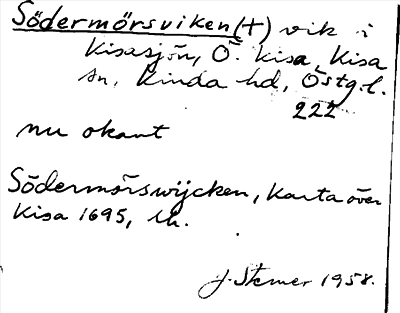 Södermörsviken (+) vik i
Kisasjön, Ö. Kisa, Kisa
sn, Kinda hd, Östg.l.
222
nu okänt
Södermörswijcken, Karta över
Kisa 1695,
J. Stemer 1958.